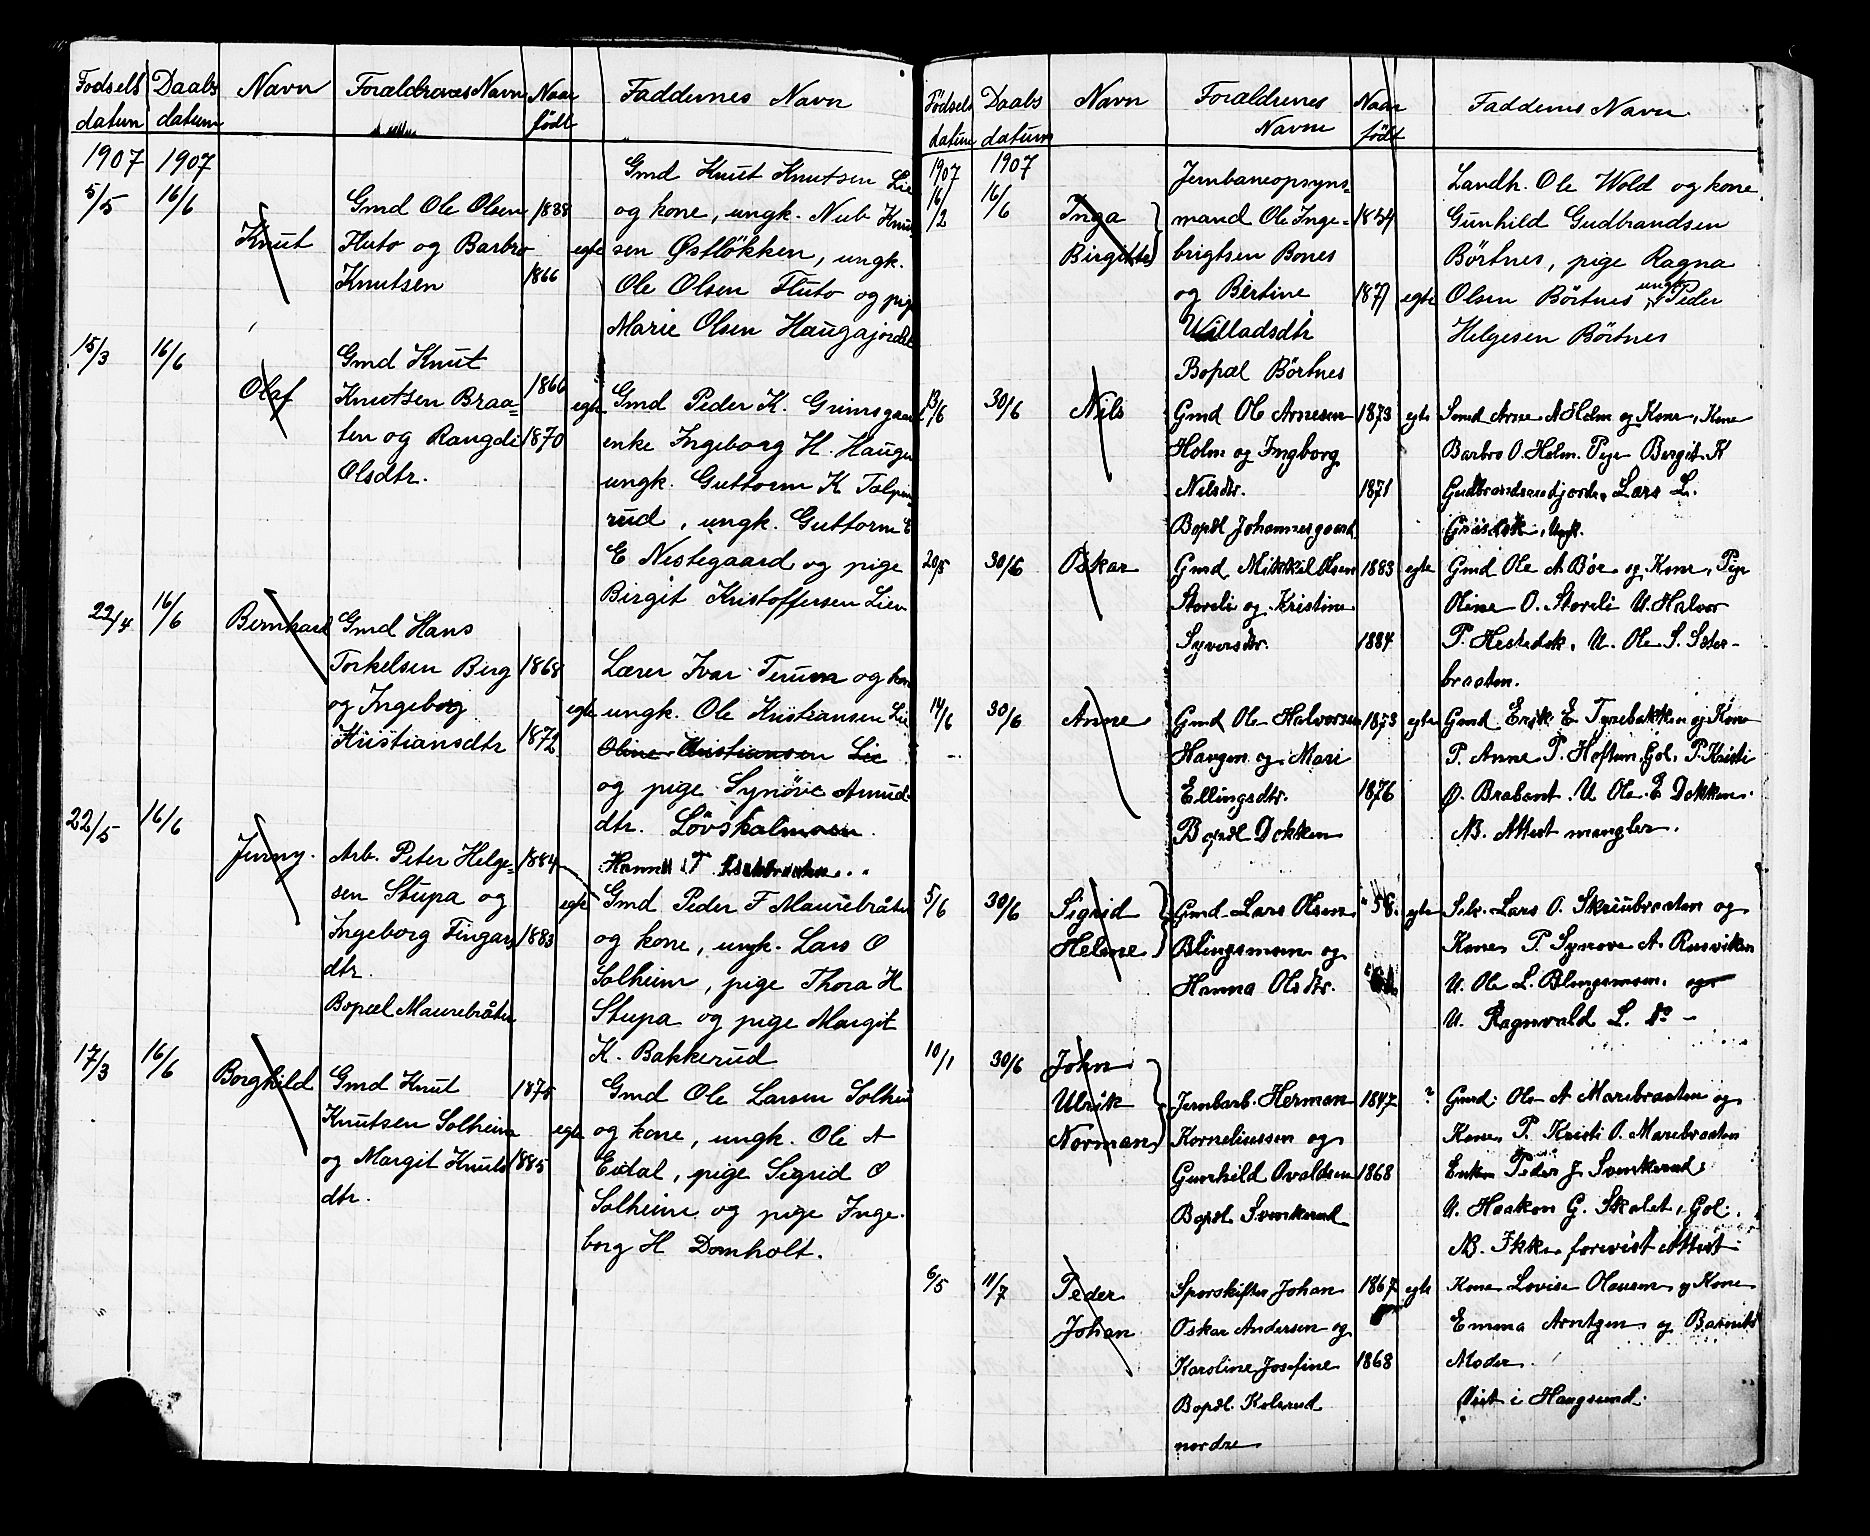 Fødsels datum
Daabs datum
Navn
Forældrenes Navn
Naar født
Faddernes Navn
1907 1907
5/5 16/6
Knut
Gmd Ole Olsen 1838
Fluto og Barbro
Knutsen 1866
egte
Gmd Knut Knutsen Lie
og kone, ungk. Nub Knut-
sen Østløkken, ungk.
Ole Olsen Fluto og pige
Marie Olsen Haugajordet
15/3 16/6
Olaf
Gmd Knut
Knutsen Braa- 1866
ten og Rangdi 1870
Olsdtr.
egte
Gmd Peder K. Grimsgaar
enke Ingeborg H. Haugen
ungk. Guttorm K
rud, ungk. Guttorm E
E Nestegaard og pige
Birgit Kristoffersen Lien
22/4 16/6
Bernhard
Gmd Hans
Torkelsen Berg 1868
og Ingeborg
Kristiansdtr 1872
egte
Lærer Ivar Terum og kone
ungk. Ole Kristiansen Lie
Oline Kristiansen Lie
og pige Synøve Amud-
dtr. Løvskalmoen.
22/5 16/6
Jurny.
Arb. Peter Helge- 1884
sen Stupa og
Ingeborg Fingar 1883
dtr.
Bopæl Maurebråten
egte
Hanna T
Gmd Peder F Maurebråten
og kone, ungk. Lars O
Solheim, pige Thora H
Stupa og pige Margit
K. Bakkerud
17/3 16/6
Borghild
Gmd Knut 1875
Knutsen Solheim
og Margit Knuts 1885
dtr.
egte
Gmd Ole Larsen Solheim
og kone, ungk. Ole A
Eidal, pige Sigrid O
Solheim og pige Inge-
borg H Domholt.
Fødsels datum
Daabs datum
Navn
Forældrenes Navne
Naar født
Faddernes Navn
1907 1907
16/2 16/6
Inga
Birgitte
Jernbaneopsyns-
mand Ole Inge- 1854
brigtsen Bones
og Bertine 1871
Willadsdtr
Bopæl Børtnes
egte
Landh. Ole Wold og kone
Gunhild Gudbrandsen
Børtnes, pige Ragna
Olsen Børtnes ungk. Peder
Helgesen Børtnes
13/6 30/6
Nils
Gmd Ole Arnesen 1873
Holm og Ingborg
Nilsdtr. 1871
Bopæl Johannesgaard
egte
Smd Arne A Holm og Kone, Kone
Barbro O. Holm. Pige Bergit K
Gudbrandsendjorde, Lars L.
Ungk.
20/5 30/6
Oskar
Gmd Mikkel Olsen 1883
Storeli og Kristine
Syversdtr. 1884
egte
Gmd Ole A Bøe og Kone, Pige
Oline O. Storeli U. Halvor
P. U. Ole S.
braaten.
14/6 30/6
Anne
Gmd Ole Halvorsen 1873
Haugen og Mari
Ellingsdtr. 1876
Bopæl Dokken
egte
Gmd Erik E Tyrebakken og Kone
P. Anne P. Heftum, Gol. P. Kristi
O. Brabant. U Ole E Dokken.
NB. Attest mangler.
5/6 30/6
Sigrid
Helene
Gmd. Lars Olsen "58.
Blingsmoen og
Hanna Olsdtr.
egte
Selv. Lars O. Skrinbraaten og
Kone P. Synøve A. Rusviken
U. Ole L. Blingsmoen. og
U. Ragnvald L. Do -
10/1 30/6
John
Ulrik
Norman
Jernbarb. Herman 1847
Korneliussen og
Gunhild Ovaldsen 1868
Bopæl Svenkerud
?
Gmd. Ole A Marebraaten og
Kone, P. Kristi O. Marebraaten
Enken Peder J. Svenkerud
U. Haakon G. Skolet, Gol.
NB. Ikke forevist Attest
6/5 11/7
Peder
Johan
Sporskifter Johan 1867
Oskar Andersen og
Karoline Josefine 1868
Bopæl Kolsrud
nordre
egte
Kone Lovise Olausen og Kone
Emma Arntzen og Barnets
Moder.
Døbt i Haugsund.